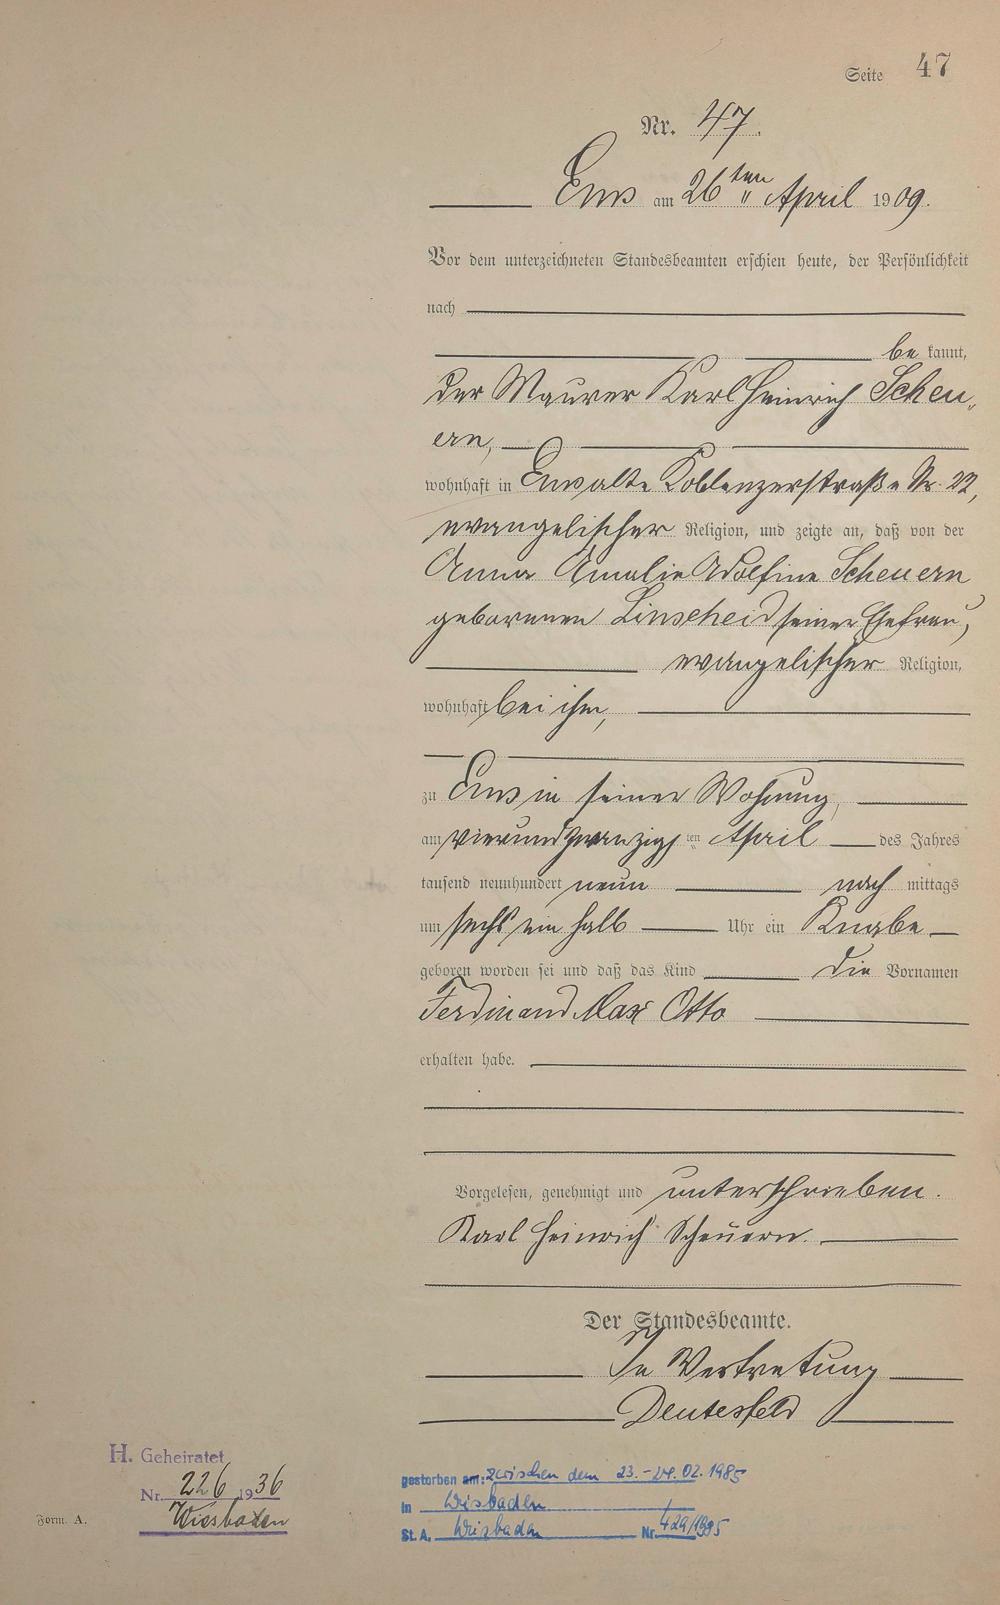 Seite 47
Nr. 47.
Ems am 26ten April 1909.
Vor dem unterzeichneten Standesbeamten erschien heute, der Persönlichkeit
nach
be kannt,
der Maurer Karl Heinrich Scheu-
ern,
wohnhaft in Ems alte Koblenzerstraße Nr. 22,
evangelischer Religion, und zeigte an, daß von der
Anna Amalie Adolfine Scheuern
geborenen Linscheid seiner Ehefrau,
evangelischer Religion,
wohnhaft bei ihm,
zu Ems in seiner Wohnung,
am vierundzwanzigsten April des Jahres
tausend neunhundert neun nach mittags
um sechs ein halb Uhr ein Knabe
geboren worden sei und daß das Kind die Vornamen
Ferdinand Max Otto
erhalten habe.
Vorgelesen, genehmigt und unterschrieben.
Karl Heinrich Scheuern.
Der Standesbeamte.
In Vertretung
Deutesfeld
H. Geheiratet
Nr. 226 1936
Wiesbaden
Form. A.
gestorben am: zwischen dem 23.-24.02.1985
in Wiesbaden
St. A. Wiesbaden Nr.